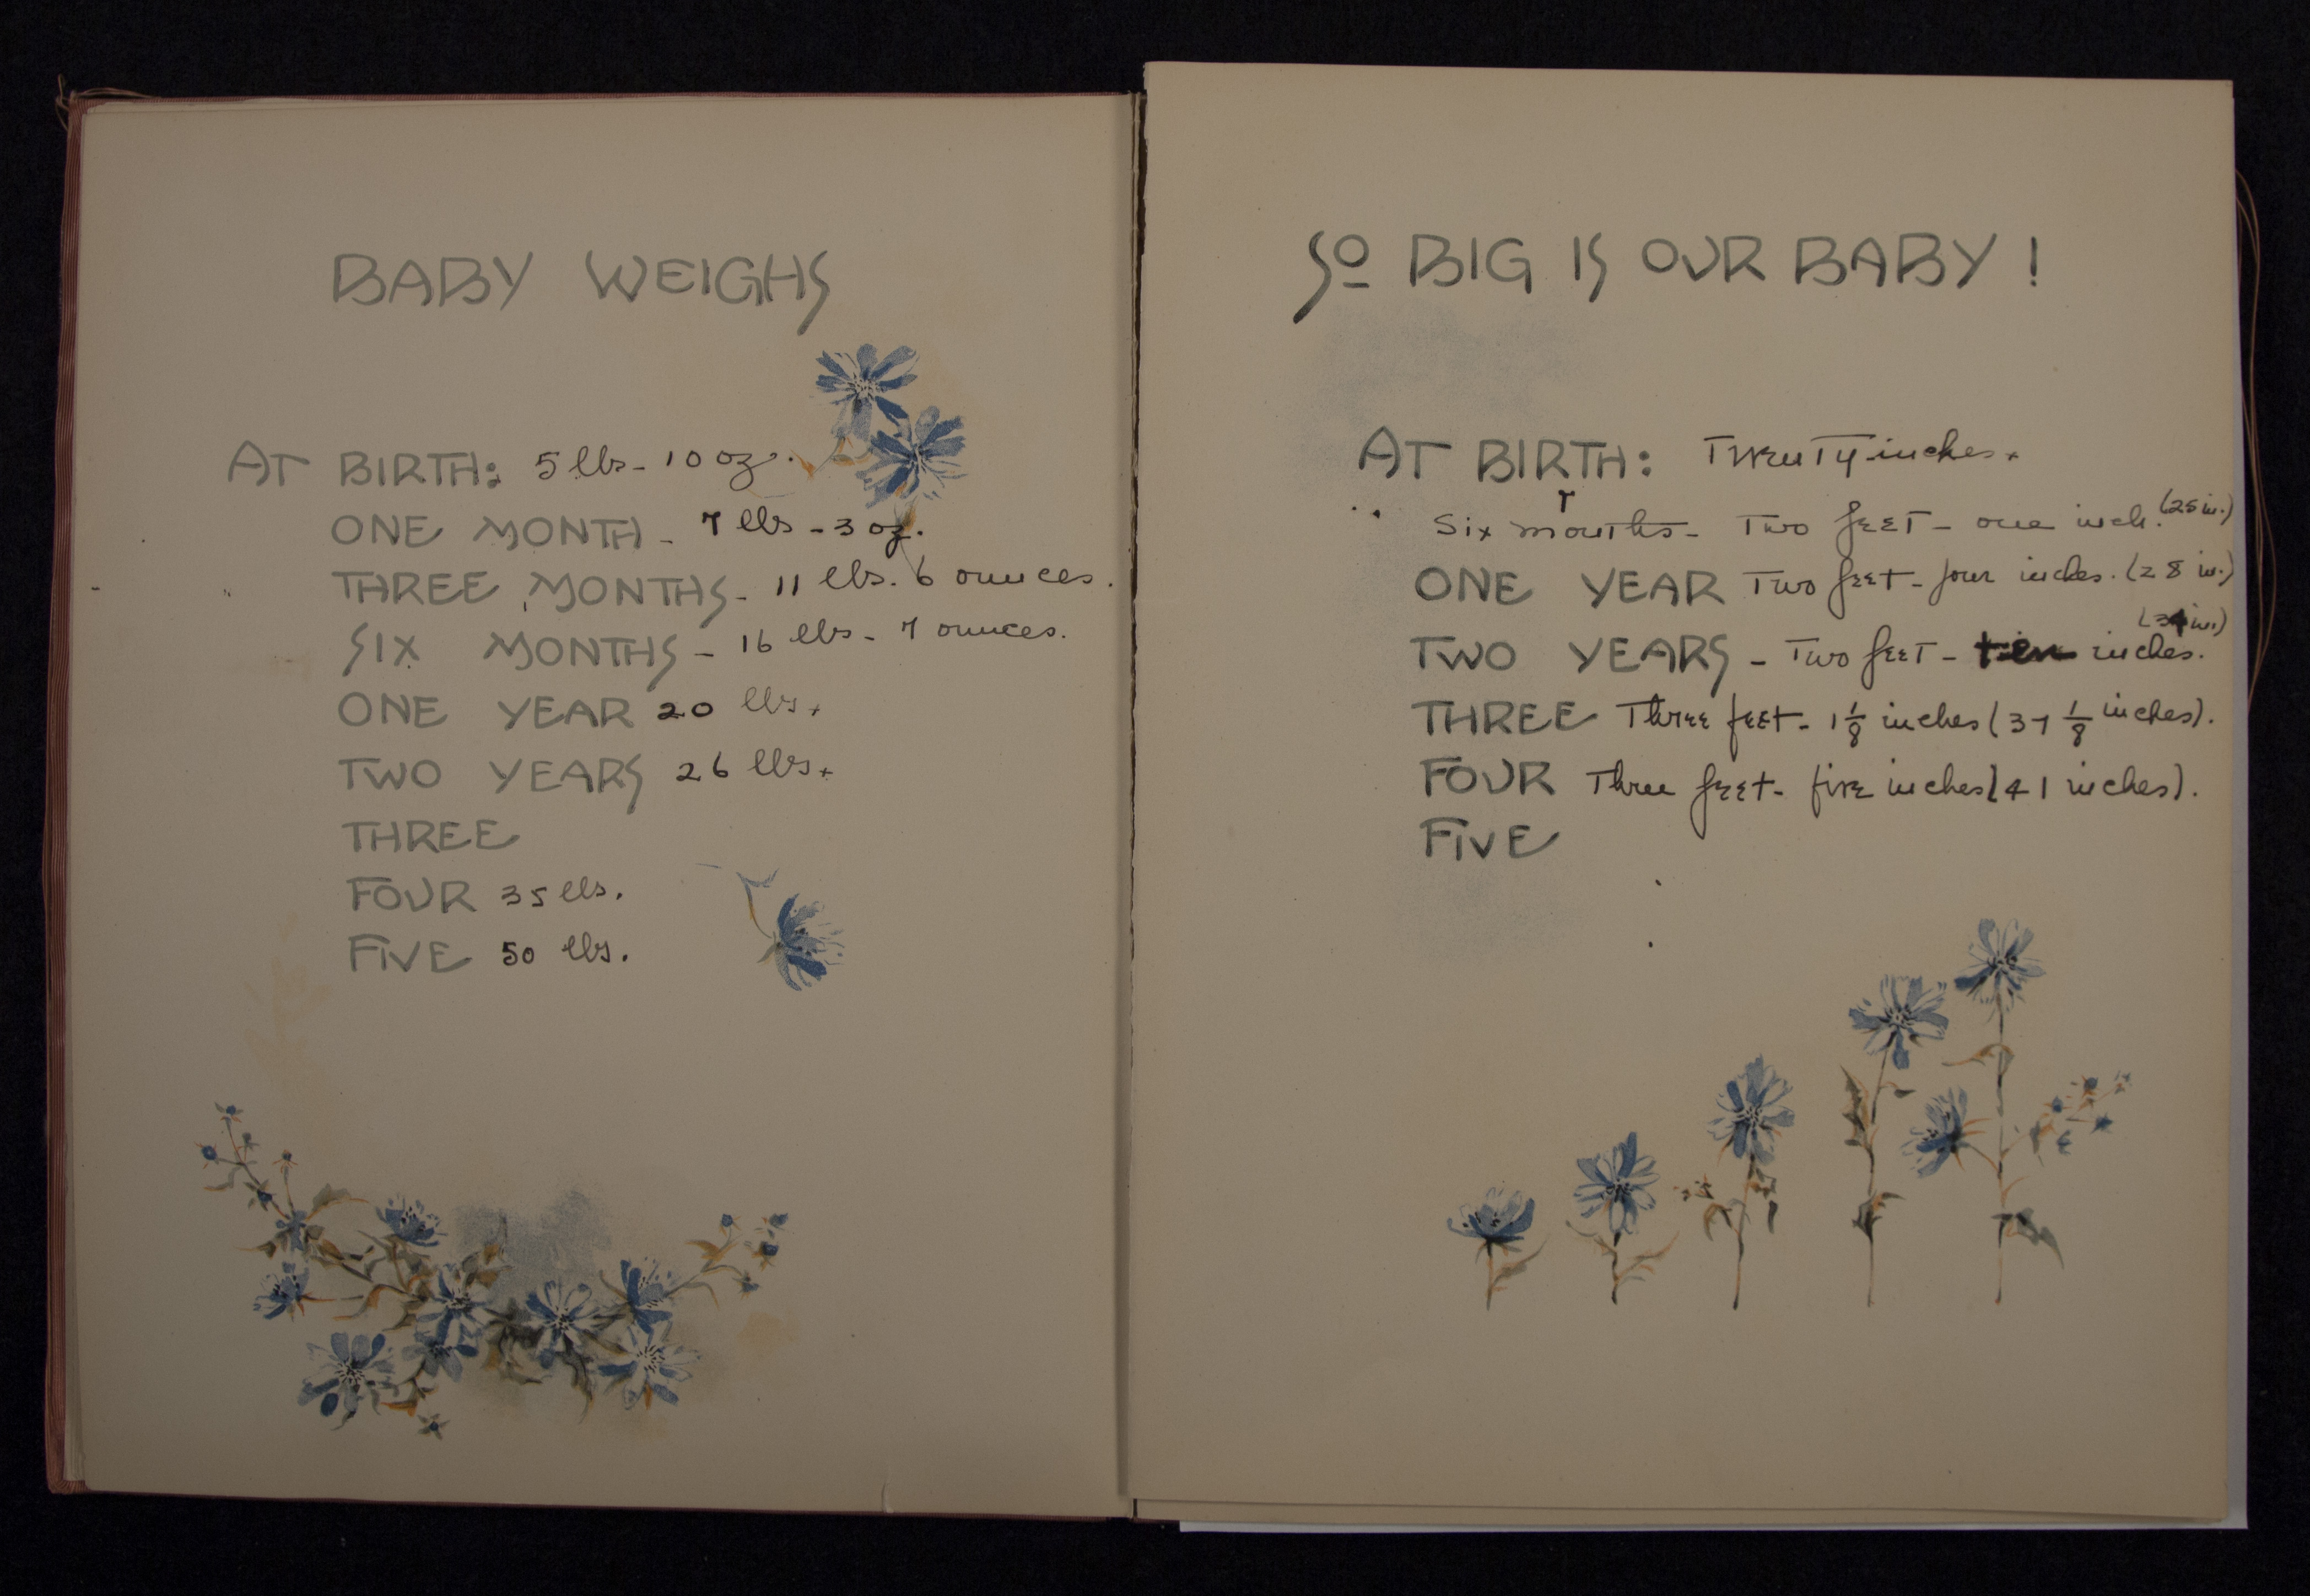 BABY WEIGHS
AT BIRTH: 5 lbs - 10 oz.
ONE MONTH - 7 lbs - 3 oz.
THREE MONTHS - 11 lbs. 6 ounces.
SIX MONTHS - 16 lbs - 7 ounces.
ONE YEAR 20 lbs.
TWO YEARS 26 lbs.
THREE
FOUR 35 lbs.
FIVE 50 lbs.
SO BIG IS OUR BABY!
AT BIRTH: Twenty inches.
Six months - Two feet - one inch. (25 in.)
ONE YEAR Two feet - four inches. (28 in.)
(34 in.)
TWO YEARS - Two feet - ten inches.
THREE Three feet - 1 1/8 inches (37 1/8 inches).
FOUR Three feet - five inches (41 inches).
FIVE